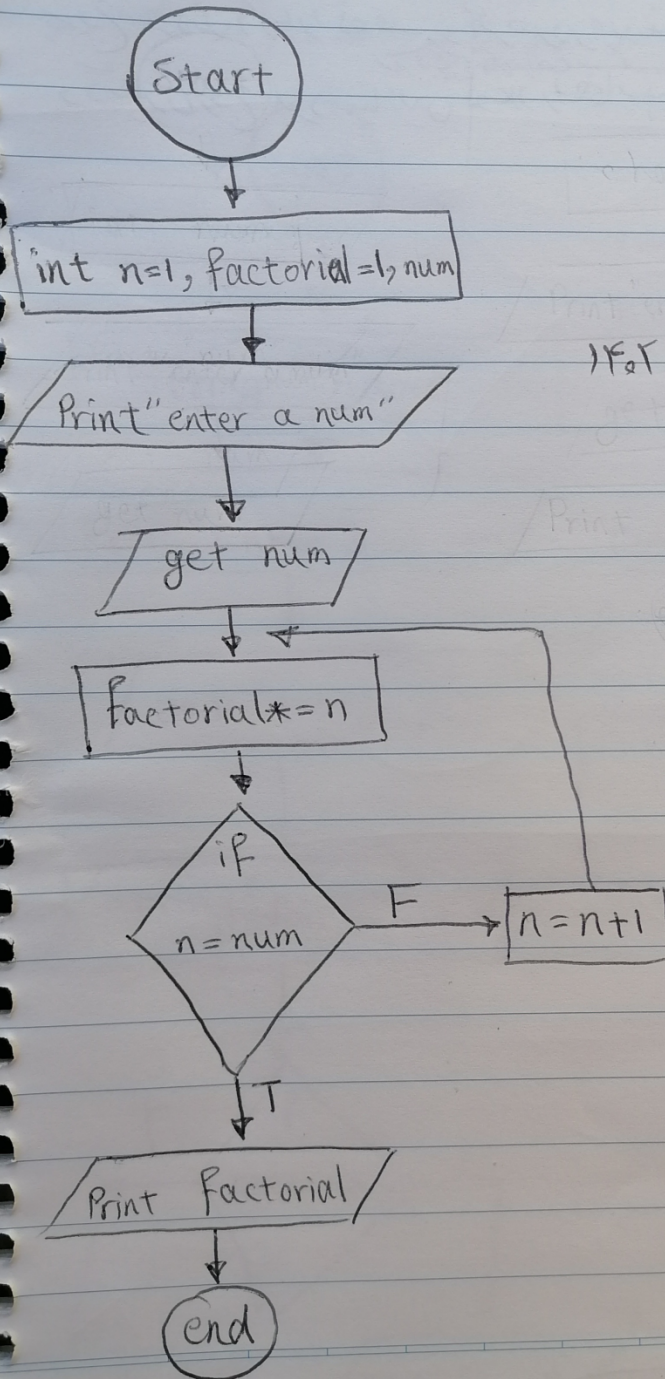 Start
int n=1, factorial=1, num
۱۴۰۲
Print "enter a num"
get num
factorial*=n
if
n=num
F
n=n+1
T
Print factorial
end